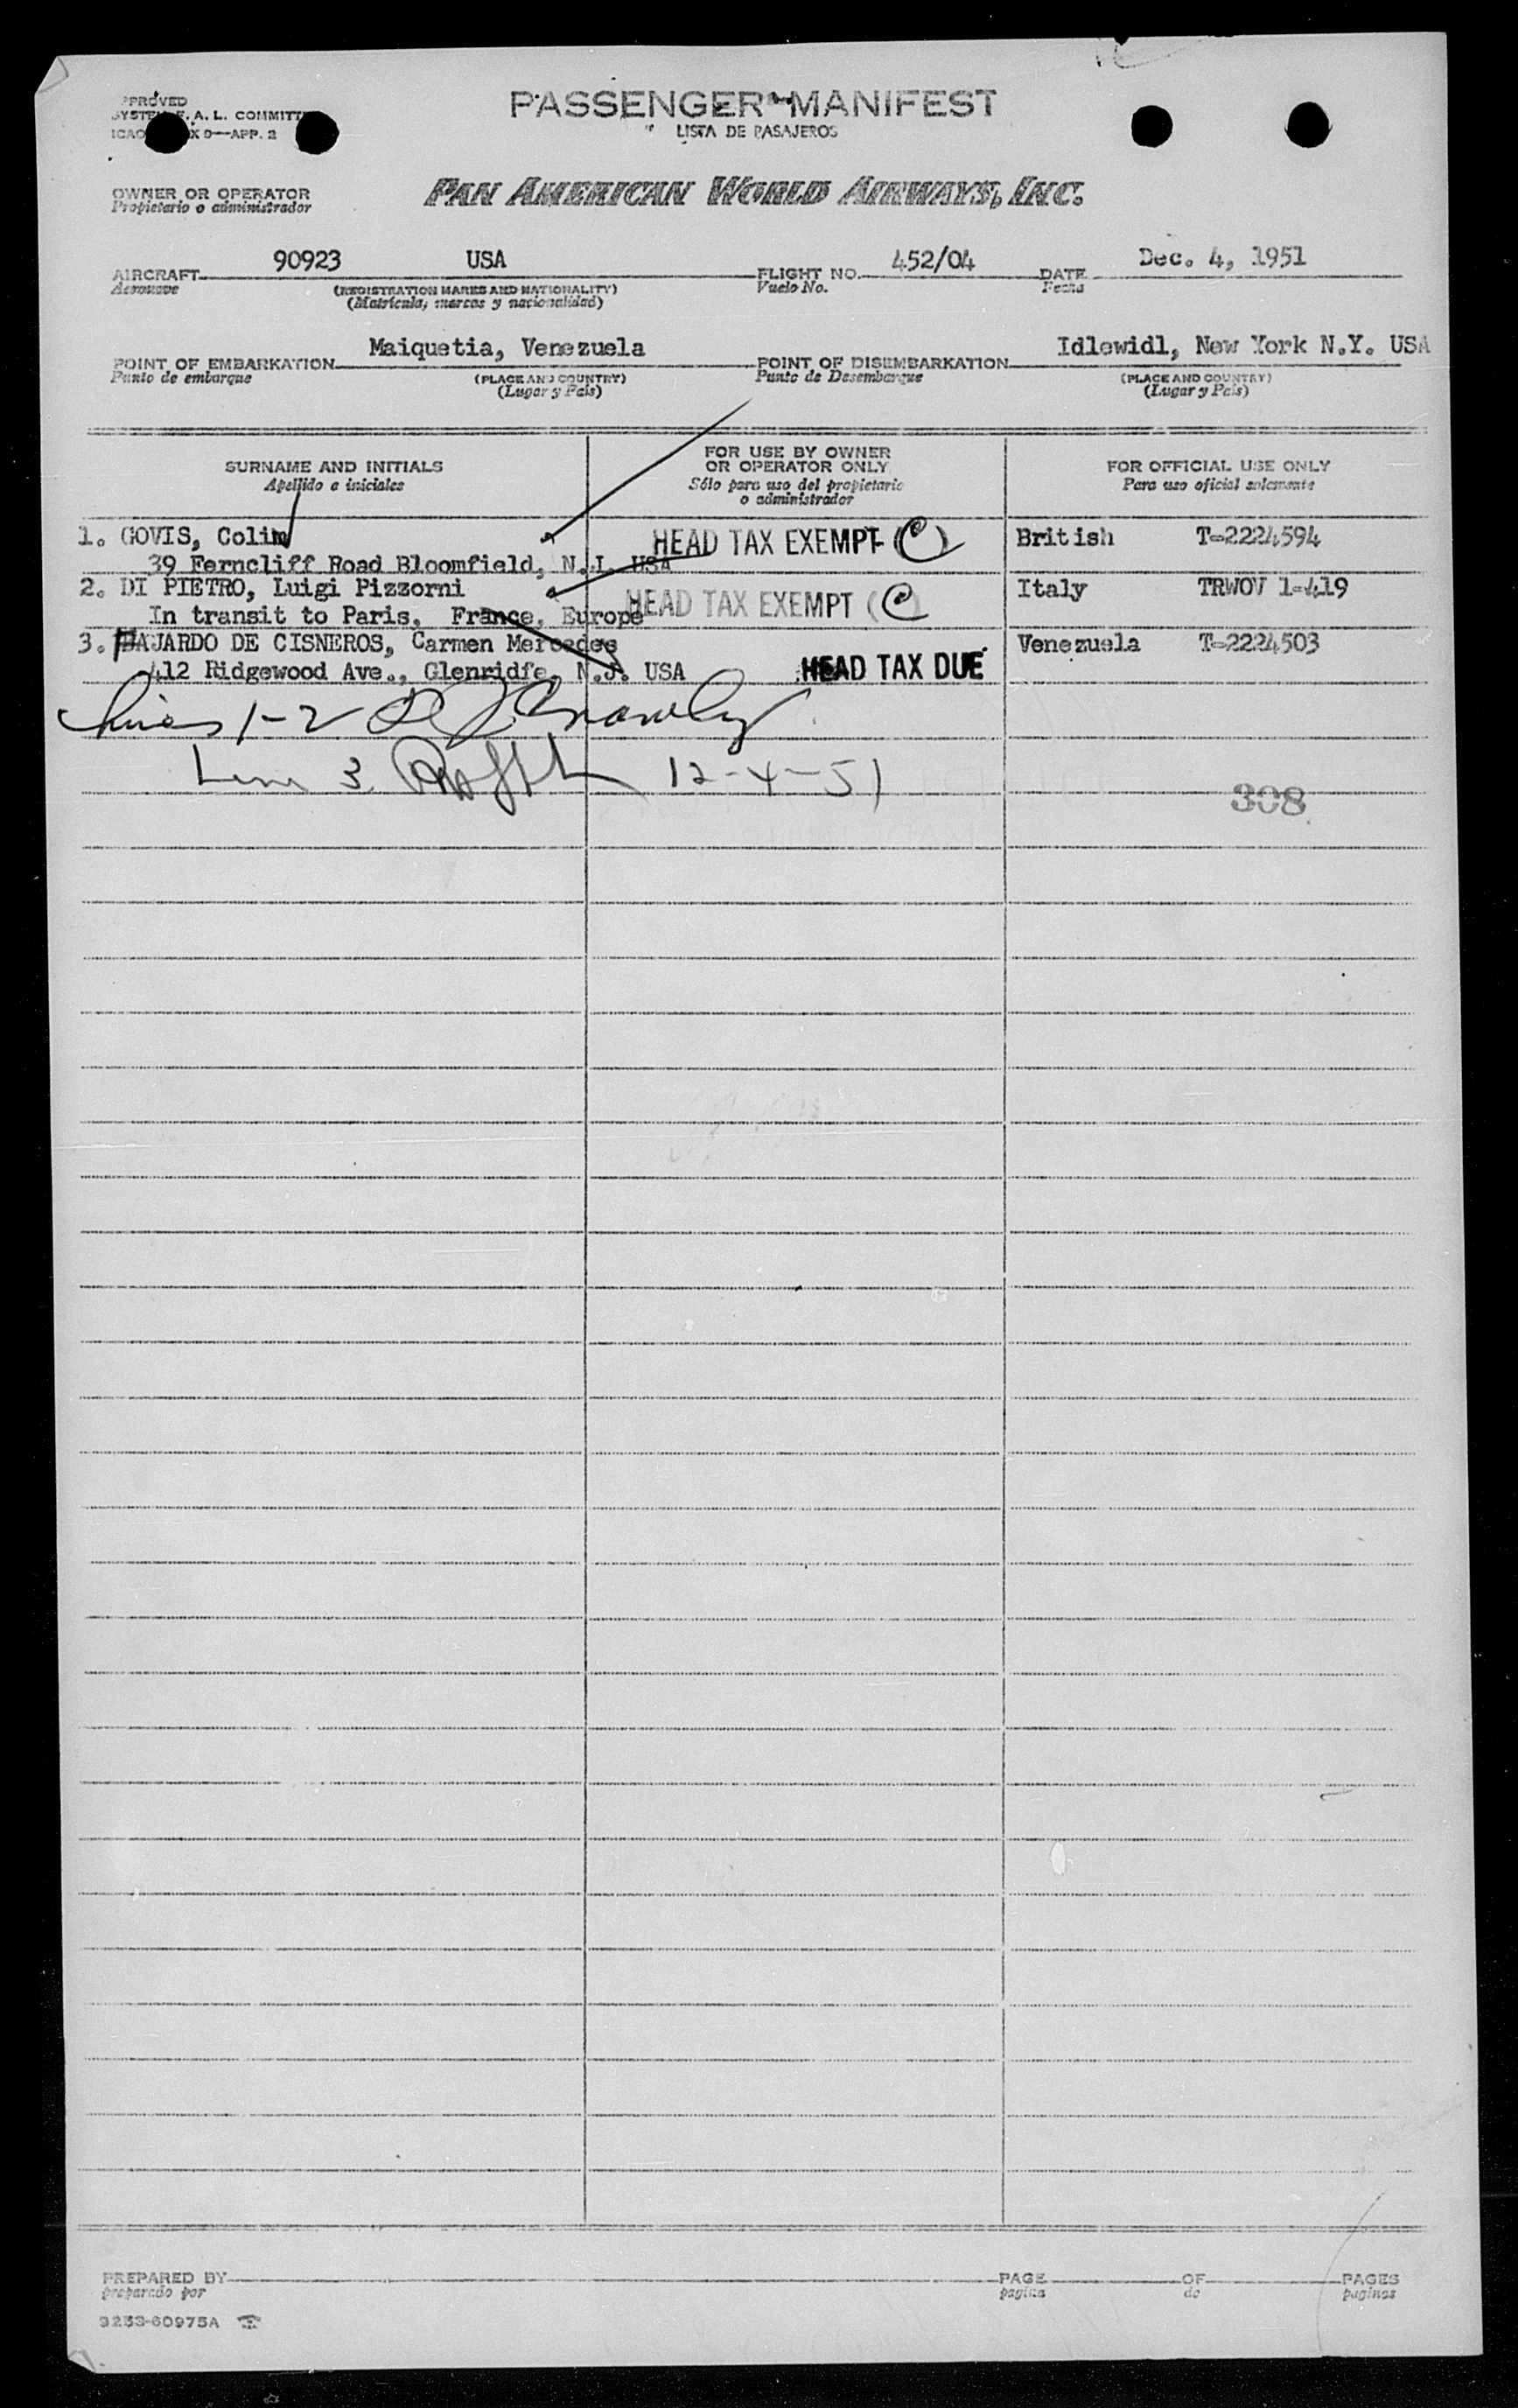 PASSENGER MANIFEST
LISTA DE PASAJEROS
PPROVED
SYSTEM F. A. L. COMMITT
ICAO X 9—APP. 2
OWNER OR OPERATOR
Propietario o administrador
PAN AMERICAN WORLD AIRWAYS, INC.
AIRCRAFT 90923 USA FLIGHT NO. 452/04 DATE Dec. 4, 1951
Aeronave (REGISTRATION MARKS AND NATIONALITY) Vuelo No. Fecha
(Matrícula, marcas y nacionalidad)
POINT OF EMBARKATION Maiquetia, Venezuela POINT OF DISEMBARKATION Idlewidl, New York N.Y. USA
Punto de embarque (PLACE AND COUNTRY) Punto de Desembarque (PLACE AND COUNTRY)
(Lugar y País) (Lugar y País)
SURNAME AND INITIALS FOR USE BY OWNER OR OPERATOR ONLY FOR OFFICIAL USE ONLY
Apellido e iniciales Sólo para uso del propietario o administrador Para uso oficial solamente
1. GOVIS, Colin HEAD TAX EXEMPT (C) British T-2224594
39 Ferncliff Road Bloomfield, N.J. USA
2. DI PIETRO, Luigi Pizzorni HEAD TAX EXEMPT (C) Italy TRWOV 1-419
In transit to Paris, France, Europe
3. FAJARDO DE CISNEROS, Carmen Mercedes Venezuela T-2224503
412 Ridgewood Ave., Glenridfe, N.J. USA HEAD TAX DUE
Lines 1-2
Line 3 12-4-51
308
PREPARED BY PAGE OF PAGES
preparado por pagina de paginas
9253-60975A